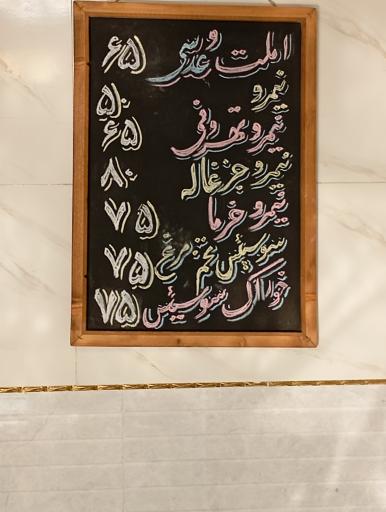 املت و عدسی ۶۵
نیمرو ۵۰
نیمرو تهرونی ۶۵
نیمرو جزغاله ۸۰
نیمرو خرما ۷۵
سوسیس تخم مرغ ۷۵
خوراک سوسیس ۷۵